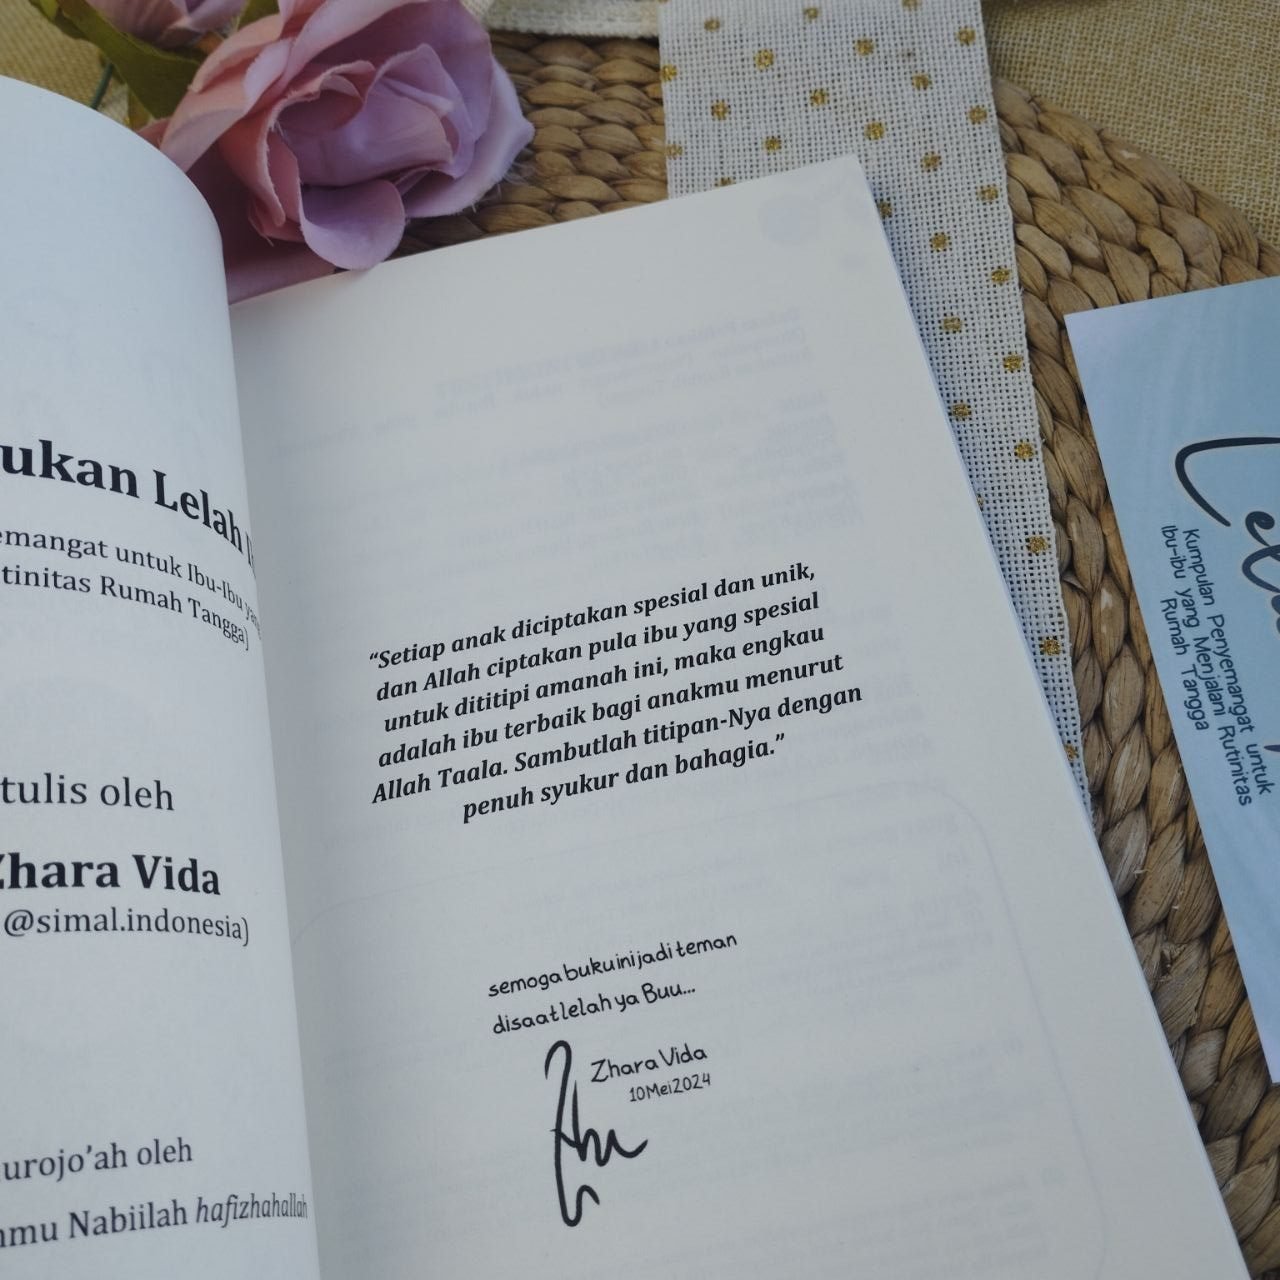 ukan Lelah
emangat untuk Ibu-Ibu yang
tinitas Rumah Tangga)
tulis oleh
Zhara Vida
@simal.indonesia)
urojo'ah oleh
mu Nabiilah hafizhahallah
“Setiap anak diciptakan spesial dan unik,
dan Allah ciptakan pula ibu yang spesial
untuk dititipi amanah ini, maka engkau
adalah ibu terbaik bagi anakmu menurut
Allah Taala. Sambutlah titipan-Nya dengan
penuh syukur dan bahagia.”
semoga buku ini jadi teman
disaat lelah ya Buu...
Zhara Vida
10 Mei 2024
Kumpulan Penyemangat untuk
Ibu-ibu yang Menjalani Rutinitas
Rumah Tangga